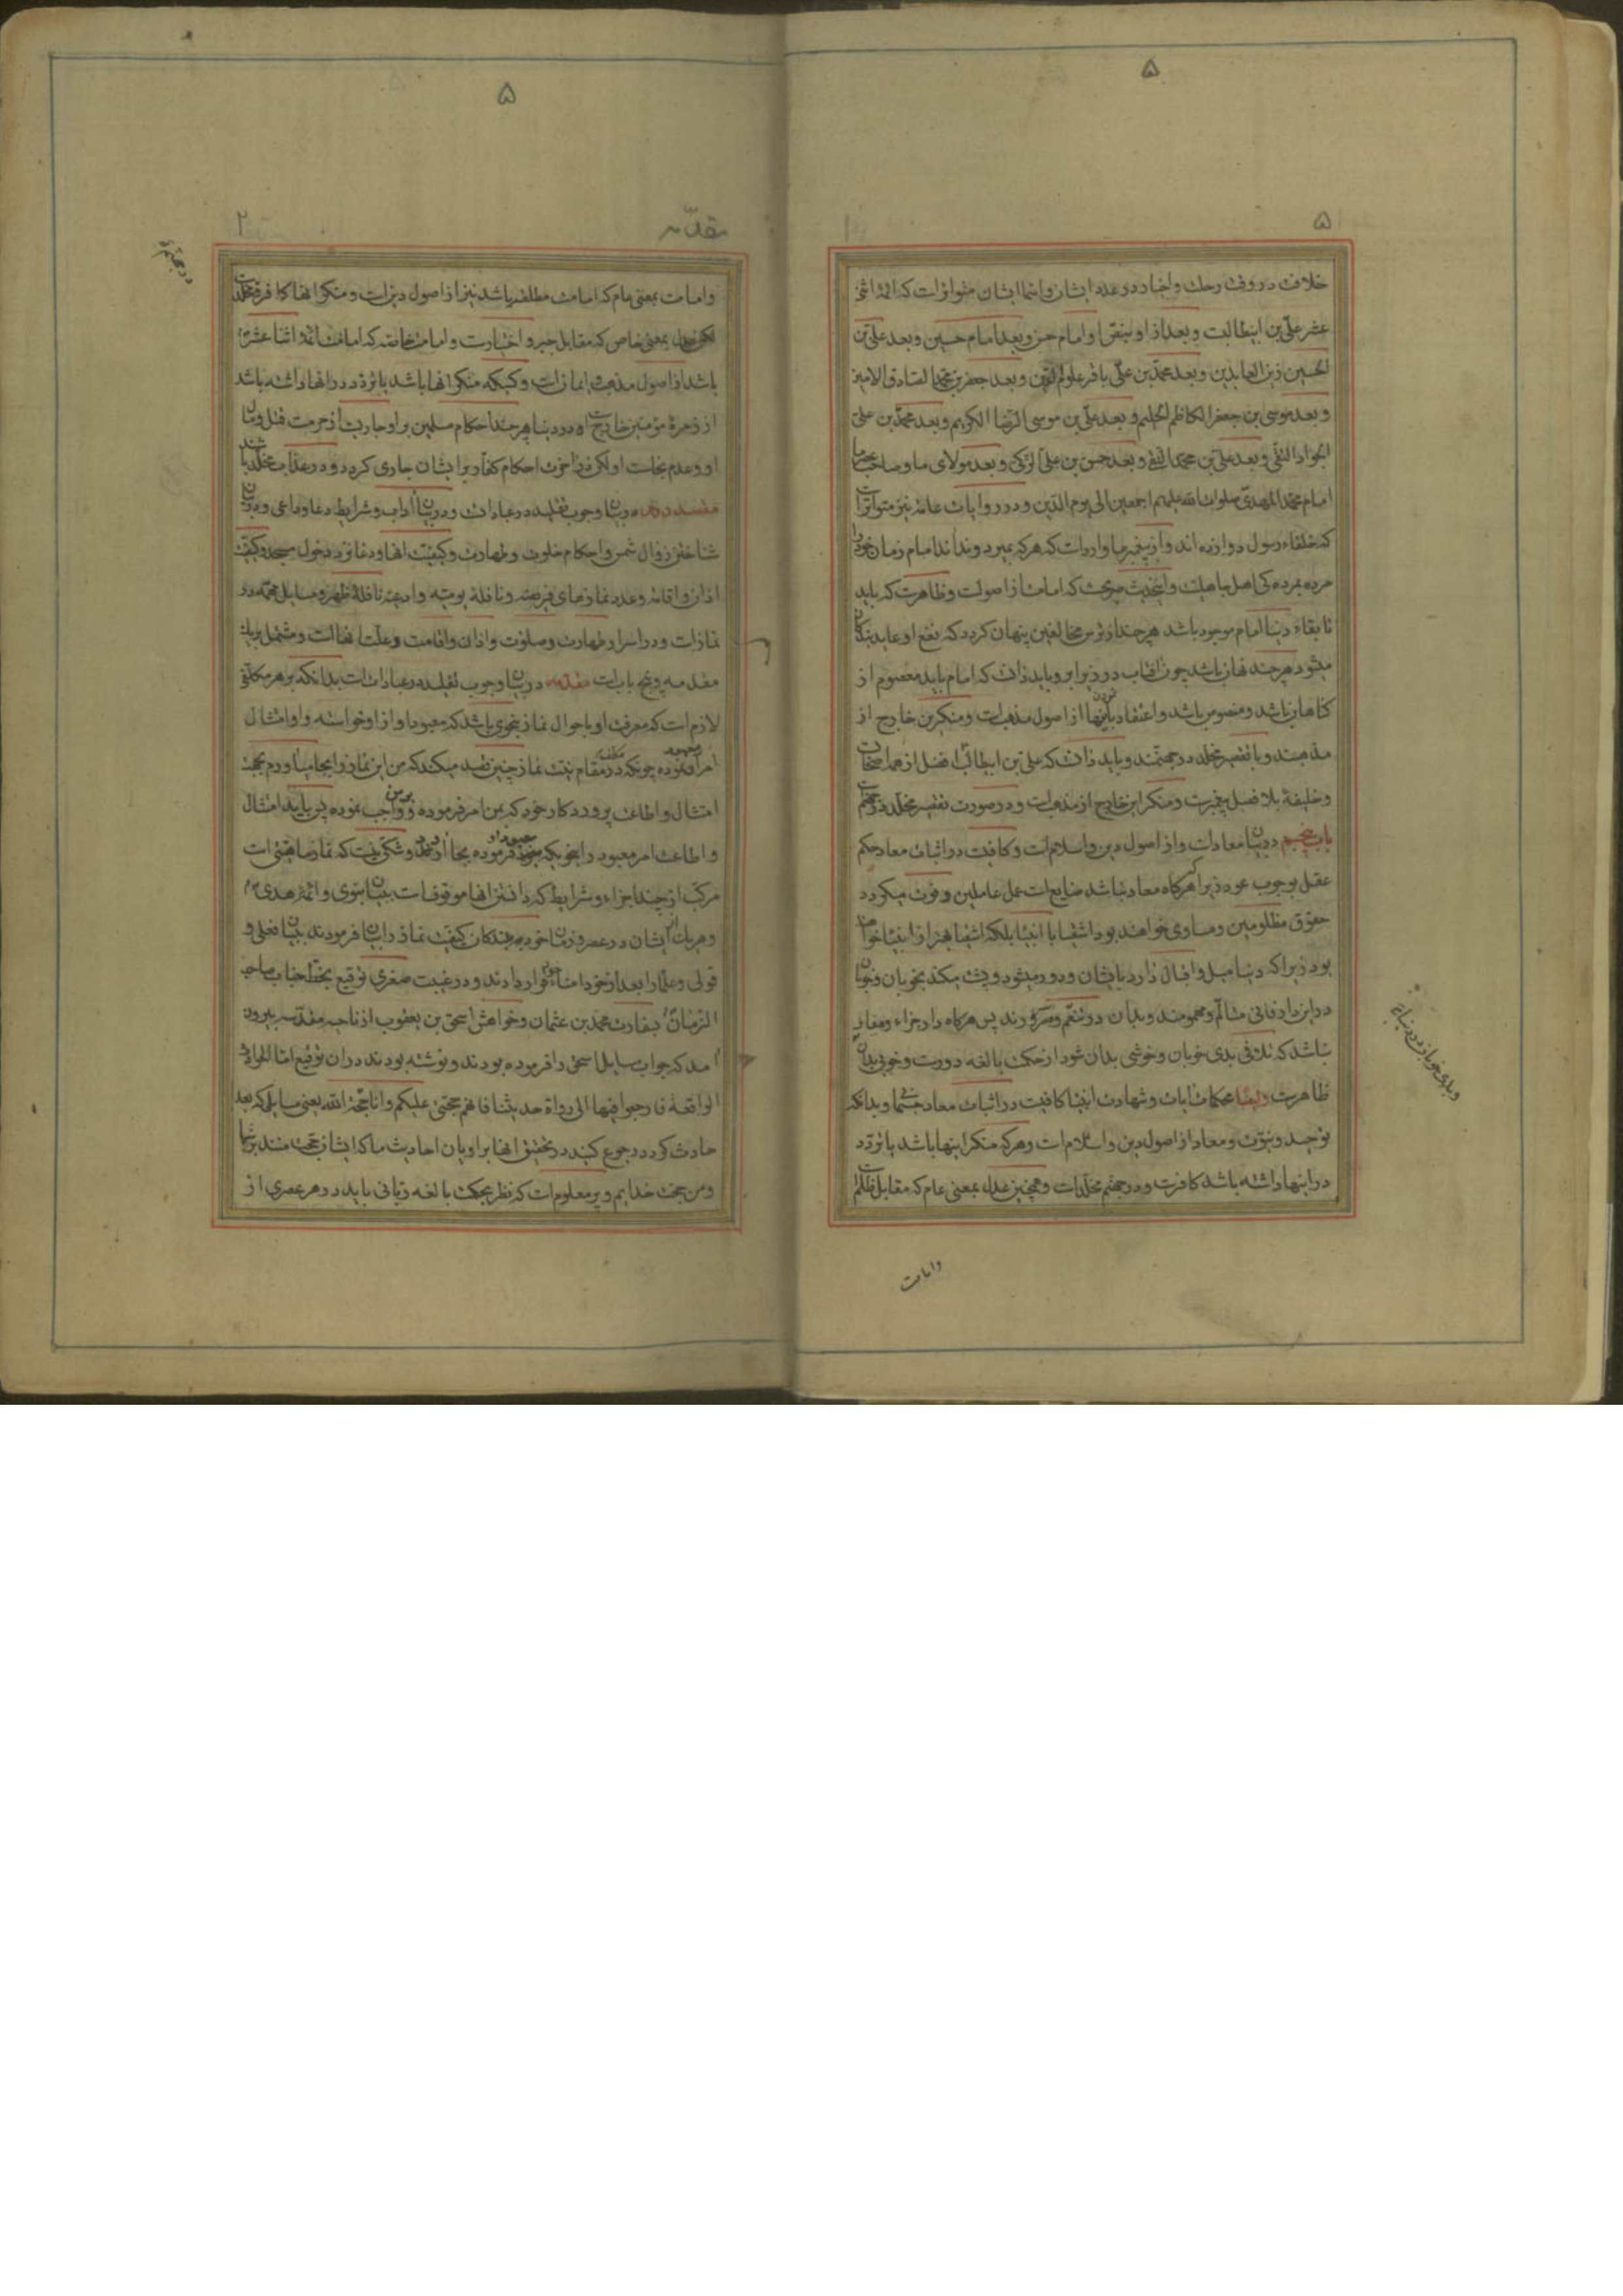 ۵
۵
خلافت در وقت رحلت و اخبار در عدد ایشان و اسماء ایشان متواتر است که ائمه اثنی
عشر علی بن ابیطالبست و بعد از او بنصّ او امام حسن و بعد امام حسین و بعد علی بن
الحسین زین العابدین و بعد محمّد بن علی باقر علوم و بعد جعفر بن محمد الصادق الامین
و بعد موسی بن جعفر الکاظم الحلیم و بعد علی بن موسی الرّضا الکریم و بعد محمّد بن علی
الجواد التقی و بعد علی بن محمد النقی و بعد حسن بن علی الزکی و بعد مولای ما و صاحب ما
امام محمّد المهدیّ صلوات الله علیهم اجمعین الی یوم الدّین و در روایات عامّه نیز متواتر است
که خلفاء رسول دوازده اند و از پیغمبر ما وارد است که هر که بمیرد و نداند امام زمان خود را
مرده مردهٔ اهل جاهلیت و اینحدیث صریحست که امامت از اصولست و ظاهرست که باید
تا بقاء دنیا امام موجود باشد هر چند از ترس مخالفین پنهان گردد که نفع او عاید بندکان
میشود هر چند نهان باشد چون افتاب در زیر ابر و باید دانست که امام باید معصوم از
کناهان باشد و منصوص باشد و اعتقاد باینها از اصول مذهبست و منکرین خارج از
مذهبند و با تقصیر مخلد در جهنمند و باید دانست که علی بن ابیطالب افضل از همه اصحاب
و خلیفهٔ بلا فصل پیغمبرست و منکر این خارج از مذهبست و در صورت تقصیر مخلّد در جهنم
باب پنجم در بیان معاد است و از اصول دین و اسلام است و کافیست در اثبات معاد حکم
عقل بوجوب عود زیرا هرکاه معاد نباشد ضایع است عمل عاملین و فوت میکردد
حقوق مظلومین و مساوی خواهند بود اشقیا با انبیا بلکه اشقیا بهتر از انبیا خواهند
بود زیرا که دنیا میل و اقبال دارد بایشان و دور میشود و پشت میکند بخوبان و خوبان
در این دار فانی متالم و مهمومند و بدان در تنعّم و سرورند پس هرکاه دار جزاء و معاد
نباشد که تلافی بدی خوبان و خوشی بدان شود از حکمت بالغه دورست و خوبی بدان
ظاهرست و ایضا محکمات ایات و شهادت انبیا کافیست در اثبات معاد جسمانی و بدانکه
توحید و نبوّت و معاد از اصول دین و اسلام است و هر که منکر اینها باشد یا تردّد
در اینها داشته باشد کافرست و در جهنم مخلّد است و همچنین عدل بمعنی عام که مقابل ظلم است
و بدی خوبان در دنیا
وامامت
مقدّمه
۲
و امامت بمعنی عام که امامت مطلقه باشد نیز از اصول دین است و منکر انها کافر و مخلد است
بمعنی خاص که مقابل جبر و اختیارست و امامت خاصّه که امامت ائمّه اثنا عشر
باشد از اصول مذهب و ایمان است و کسیکه منکر انها باشد یا تردّد در انها داشته باشد
از زمرهٔ مؤمنین خارج است و در دنیا هر چند احکام مسلمین بر او جاریست از حرمت قتل و مال
او و عدم نجاست او لکن در آخرت احکام کفّار بر ایشان جاری کردد و در عذاب مخلّد باشند
مقصد دوم در بیان وجوب تقلید در عبادات و در بیان آداب و شرایط دعا و داعی و در بیان
شناختن زوال شمس و احکام خلوت و طهارت و کیفیّت انها و دعا نزد دخول مسجد و کیفیت
اذان و اقامه و عدد نمازهای فریضه و نافلهٔ یومیّه و ادعیه نافلهٔ ظهر و مسایل مهمّه در
نماز است و در اسرار طهارت و صلوة و اذان و اقامت و علّت انها است و مشتمل بر یک
مقدمه و پنج باب است مقدّمه در بیان وجوب تقلید در عبادات است بدانکه بر هر مکلّفی
لازم است که معرفت او باحوال نماز بنحوی باشد که معبود او از او خواسته و او امتثال
امر او نموده چونکه در مقام نیّت نماز چنین قصد میکند که من این نماز را بجا میاورم بجهة
امتثال و اطاعت پروردکار خود که بمن امر فرموده و بر من واجب نموده پس باید امتثال
و اطاعت امر معبود را بنحویکه فرموده بجا آورد و شکّی نیست که نماز ماهیّتی است
مرکّب از چند اجزاء و شرایط که دانستن انها موقوفست ببیان نبوی و ائمّهٔ هدی
و هریک از ایشان در عصر و زمان خود بر بندکان کیفیّت نماز را بیان فرمودند ببیان فعلی و
قولی و علما را بعد از خود امناء قرار دادند و در غیبت صغری توقیع بخطّ جناب صاحب
الزمان بسفارت محمد بن عثمان و خواهش اسحق بن یعقوب از ناحیه مقدّسه بیرون
امد که جواب مسایل اسحق را فرموده بودند و نوشته بودند در ان توقیع امّا الحوادث
الواقعة فارجعوا فیها الی رواة حدیثنا فانهم حجّتی علیکم و انا حجّة الله یعنی مسایلی که بعد
حادث کردد رجوع کنید در تحقیق انها براویان احادیث ما که ایشان حجت منند بر شما
و من حجت خدایم و پر معلوم است که نظر بحکمت بالغه ربّانی باید در هر عصری از